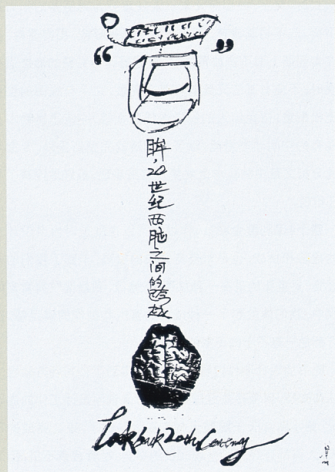 “ ”
眸,20世纪两脑之间的跨越
Look back 20th Century